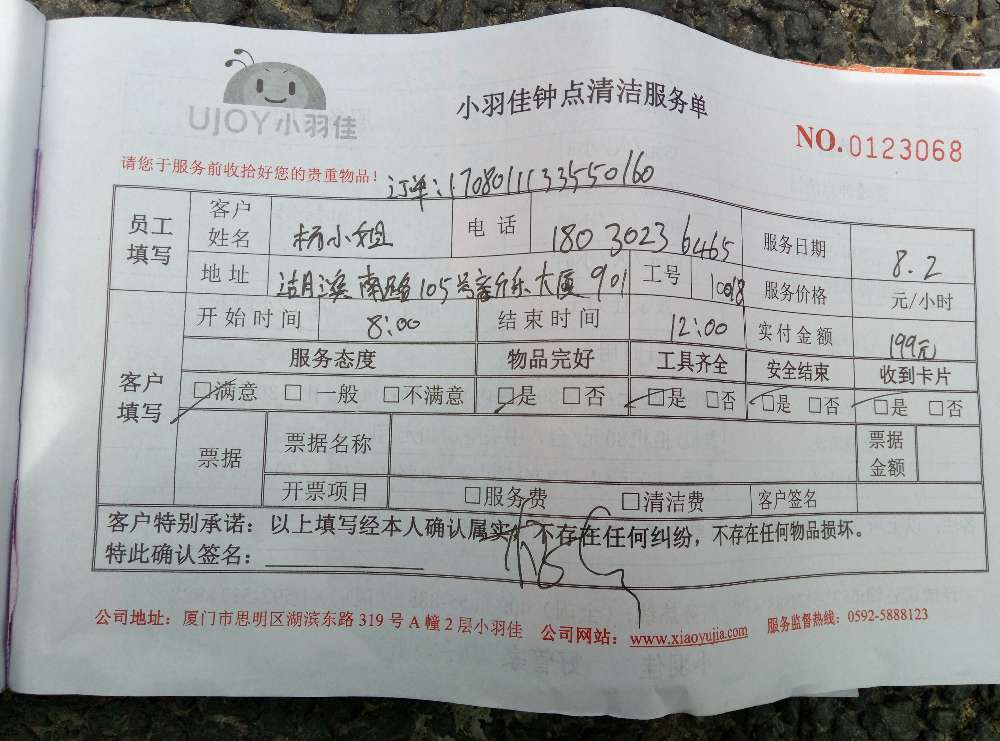 UJOY小羽佳
小羽佳钟点清洁服务单
NO.0123068
请您于服务前收拾好您的贵重物品!
订单:1708011133550160
员工填写 客户姓名 杨小姐 电话 18030236465 服务日期 8.2
地址 湖滨南路105号 大厦901 工号 10018 服务价格 元/小时
开始时间 8:00 结束时间 12:00 实付金额 199元
客户填写 服务态度 物品完好 工具齐全 安全结束 收到卡片
□满意 □一般 □不满意 □是 □否 □是 □否 □是 □否 □是 □否
票据 票据名称 票据金额
开票项目 □服务费 □清洁费 客户签名
客户特别承诺:以上填写经本人确认属实,不存在任何纠纷,不存在任何物品损坏。
特此确认签名:
公司地址:厦门市思明区湖滨东路319号A幢2层小羽佳 公司网站:www.xiaoyujia.com 服务监督热线:0592-5888123